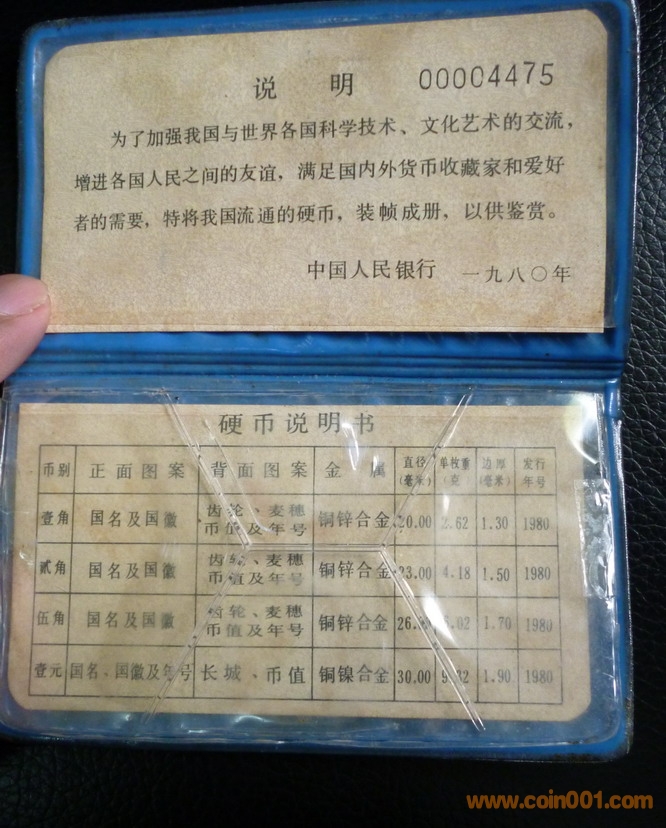 说 明 00004475
为了加强我国与世界各国科学技术、文化艺术的交流,
增进各国人民之间的友谊,满足国内外货币收藏家和爱好
者的需要,特将我国流通的硬币,装帧成册,以供鉴赏。
中国人民银行 一九八〇年
硬币说明书
币别 正面图案 背面图案 金属 直径(毫米) 单枚重(克) 边厚(毫米) 发行年号
壹角 国名及国徽 齿轮、麦穗币值及年号 铜锌合金 20.00 2.62 1.30 1980
贰角 国名及国徽 齿轮、麦穗币值及年号 铜锌合金 23.00 4.18 1.50 1980
伍角 国名及国徽 齿轮、麦穗币值及年号 铜锌合金 1.70 1980
壹元 国名、国徽及年号 长城、币值 铜镍合金 30.00 1.90 1980
www.coin001.com